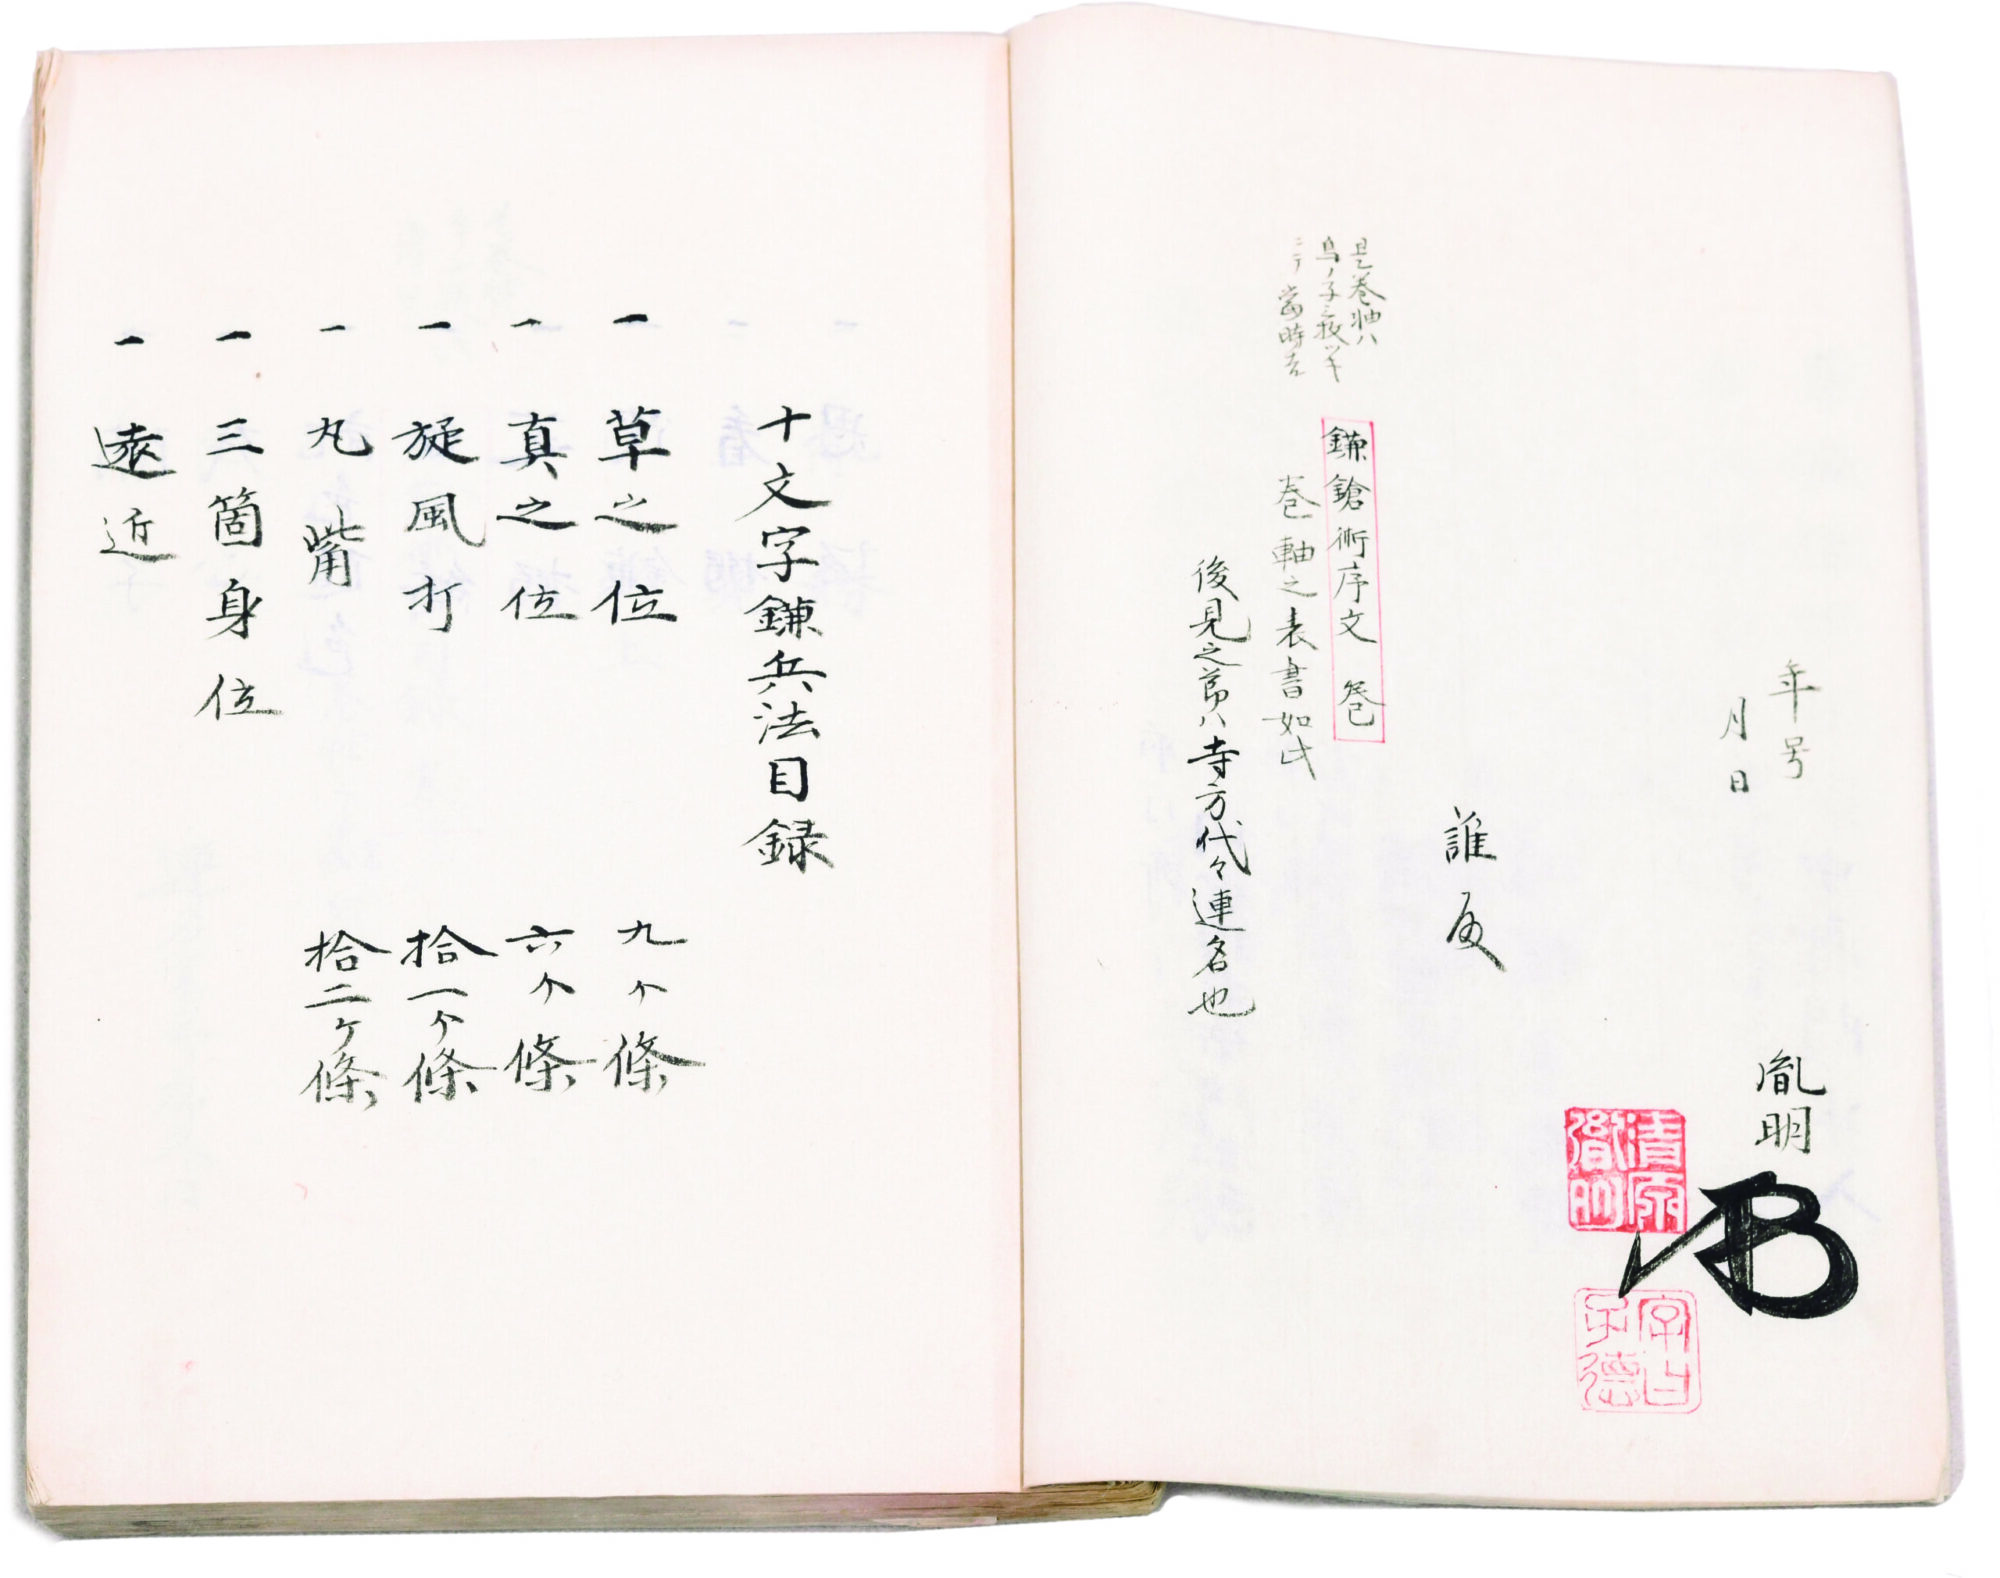 年号
月日
胤明
清原
胤明
字曰
子德
誰殿
是巻軸ハ
鳥ノ子之
ニテ当時
鎌鎗術序文 巻
巻軸之表書如此
後見之節ハ寺方代々連名也
十文字鎌兵法目録
一 草之位 九ヶ條
一 真之位 六ヶ條
一 旋風打 拾一ヶ條
一 丸嘴 拾二ヶ條
一 三箇身位
一 遠近